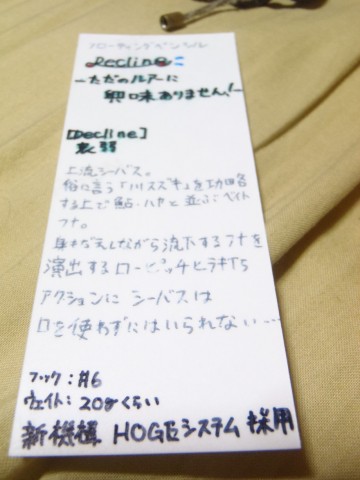 フローティングペンシル
Decline
-ただのルアーに
興味ありません!-
[Decline]
衰弱
上流シーバス。
俗に言う「川スズキ」を攻略
する上で鮎・ハヤと並ぶベイト
フナ。
しながら流下するフナを
演出するローピッチヒラキ打ち
アクションに シーバスは
口を使わずにはいられない…
フック:#6
ウェイト:20gくらい
新機種 HOGEシステム 採用